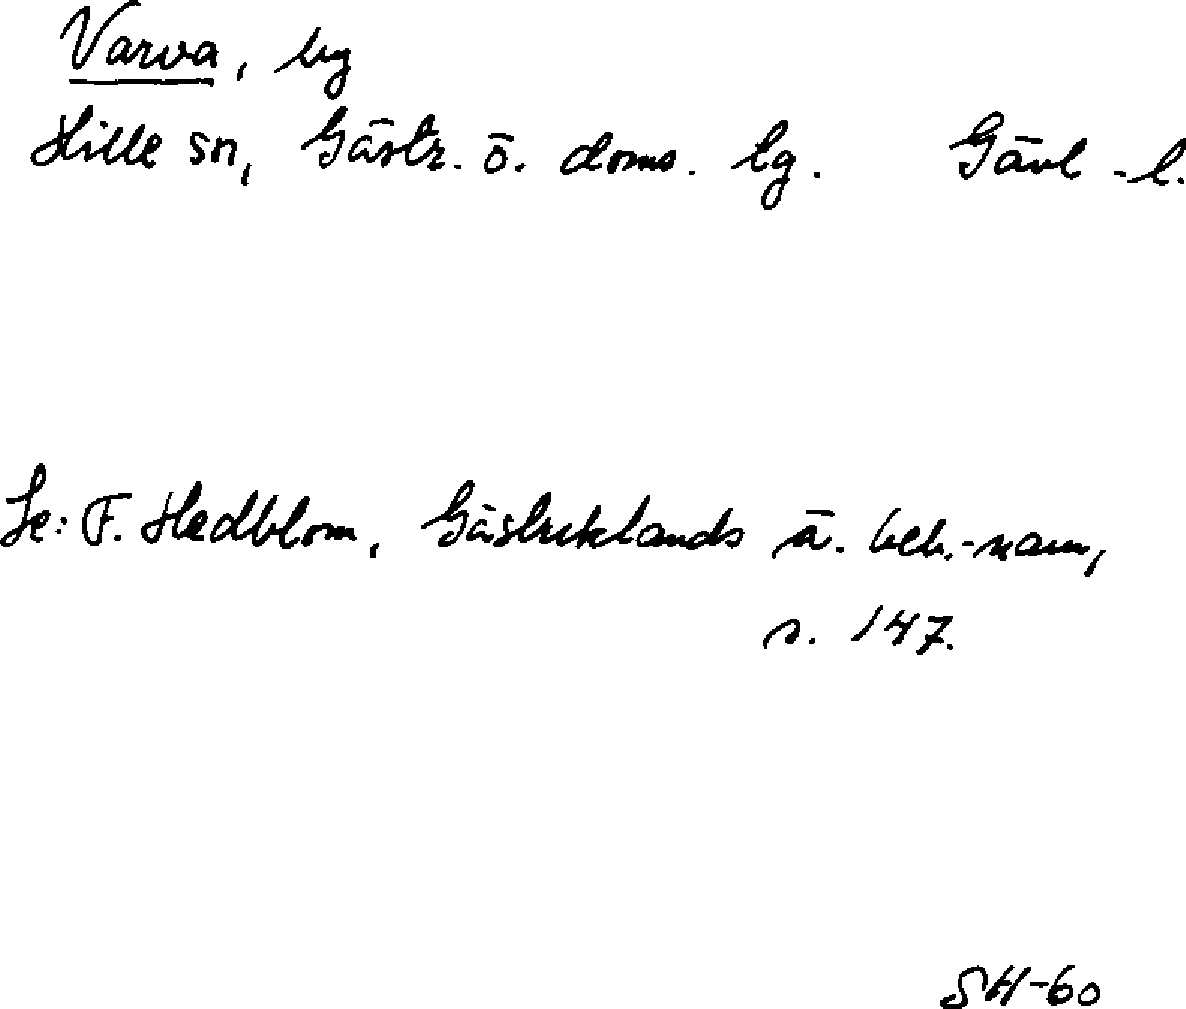 Varva, by
Hille sn, Gästr. ö. doms. tg. Gävl-l.
Se: F. Hedblom, Gästriklands ä. beb.-namn,
s. 147.
SH-60